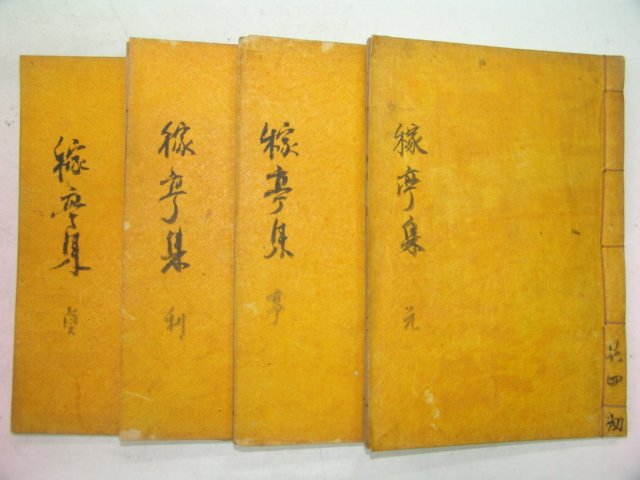 共四
稼亭集
元
稼亭集
亨
稼亭集
利
稼亭集
貞